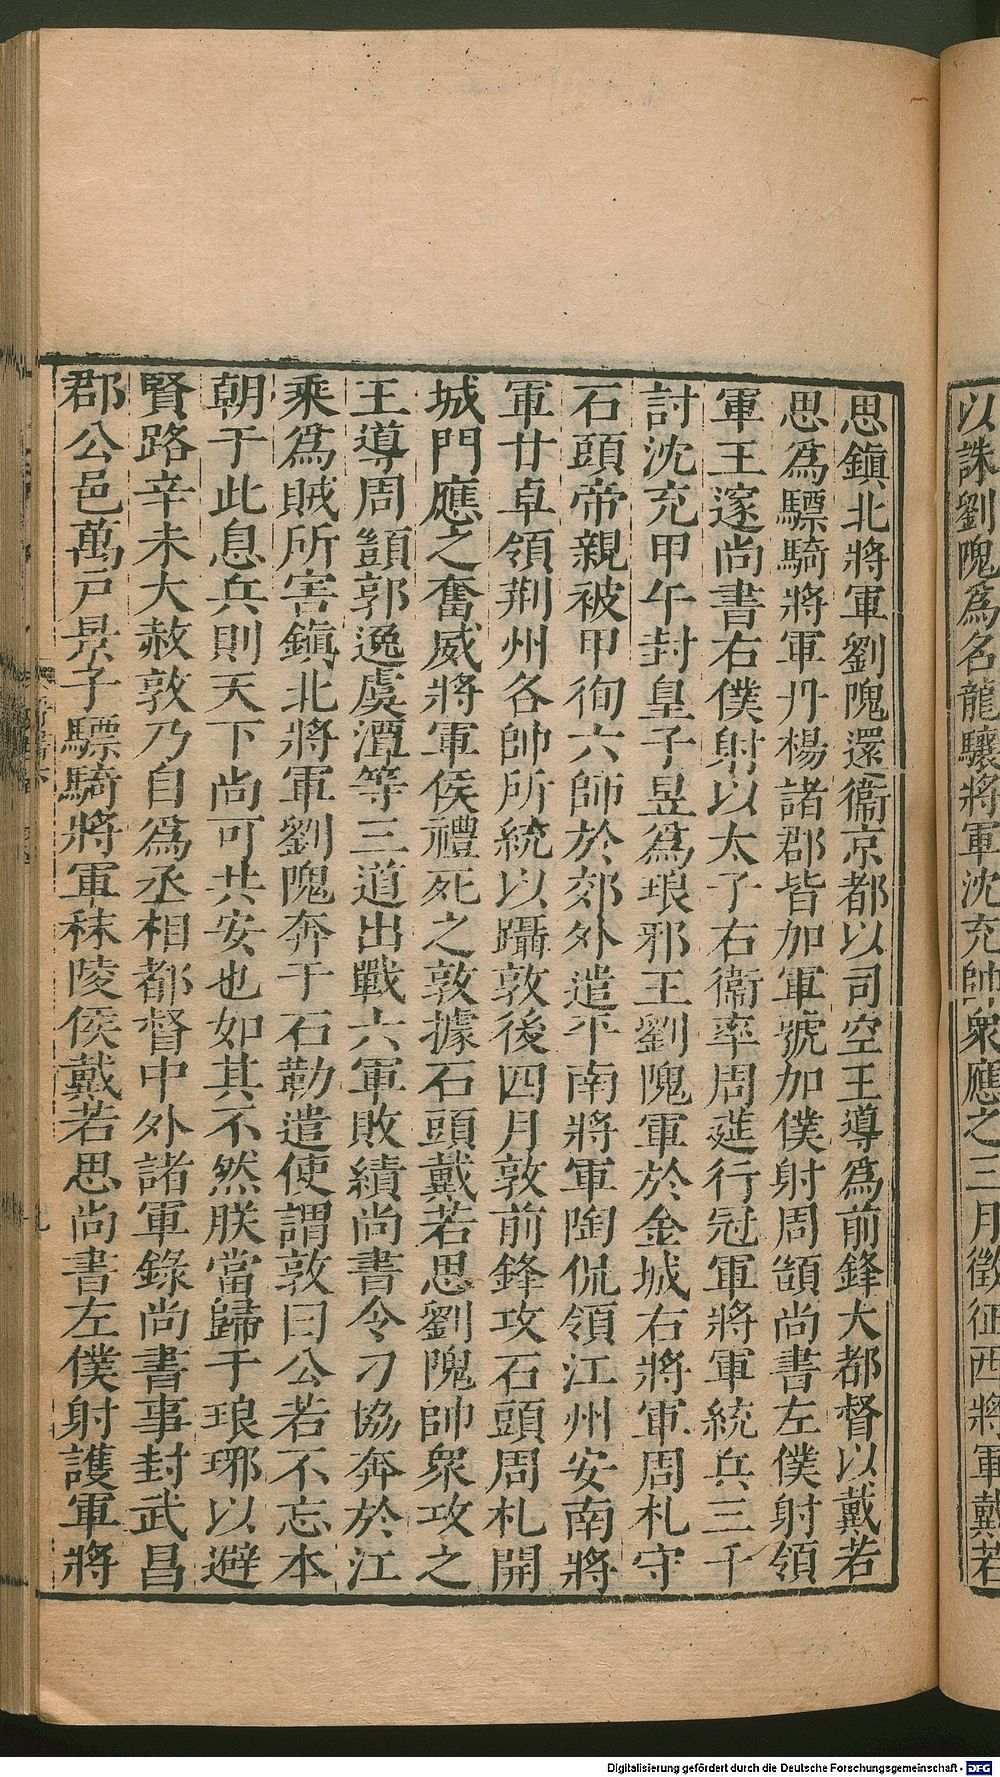 以誅劉隗爲名龍驤將軍沈充帥衆應之三月徵征西將軍戴若
思鎮北將軍劉隗還衞京都以司空王導爲前鋒大都督以戴若
思爲驃騎將軍丹楊諸郡皆加軍號加僕射周顗尚書左僕射領
軍王邃尚書右僕射以太子右衞率周莚行冠軍將軍統兵三千
討沈充甲午封皇子昱爲琅邪王劉隗軍於金城右將軍周札守
石頭帝親被甲徇六師於郊外遣平南將軍陶侃領江州安南將
軍甘卓領荆州各帥所統以躡敦後四月敦前鋒攻石頭周札開
城門應之奮威將軍侯禮死之敦據石頭戴若思劉隗帥衆攻之
王導周顗郭逸虞潭等三道出戰六軍敗績尚書令刁協奔於江
乘爲賊所害鎮北將軍劉隗奔于石勒遣使謂敦曰公若不忘本
朝于此息兵則天下尚可共安也如其不然朕當歸于琅琊以避
賢路辛未大赦敦乃自爲丞相都督中外諸軍錄尚書事封武昌
郡公邑萬戸景子驃騎將軍秣陵侯戴若思尚書左僕射護軍將
九
Digitalisierung gefördert durch die Deutsche Forschungsgemeinschaft - DFG